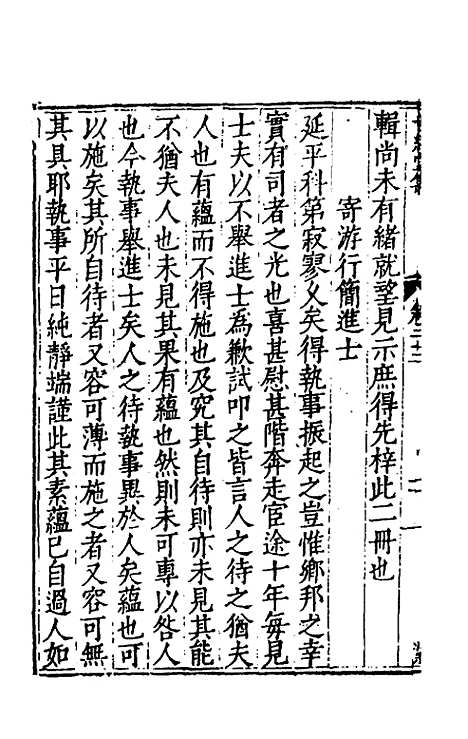 輯尚未有緒就望見示庶得先梓此二冊也
寄游行簡進士
延平科第寂寥乆矣得執事振起之豈惟鄉邦之幸
實有司者之光也喜甚慰甚階奔走宦途十年每見
士夫以不舉進士為歉試叩之皆言人之待之猶夫
人也有蘊而不得施也及究其自待則亦未見其能
不猶夫人也未見其果有蘊也然則未可專以咎人
也今執事舉進士矣人之待執事異於人矣蘊也可
以施矣其所自待者又容可薄而施之者又容可無
其具耶執事平日純靜端謹此其素蘊已自過人如